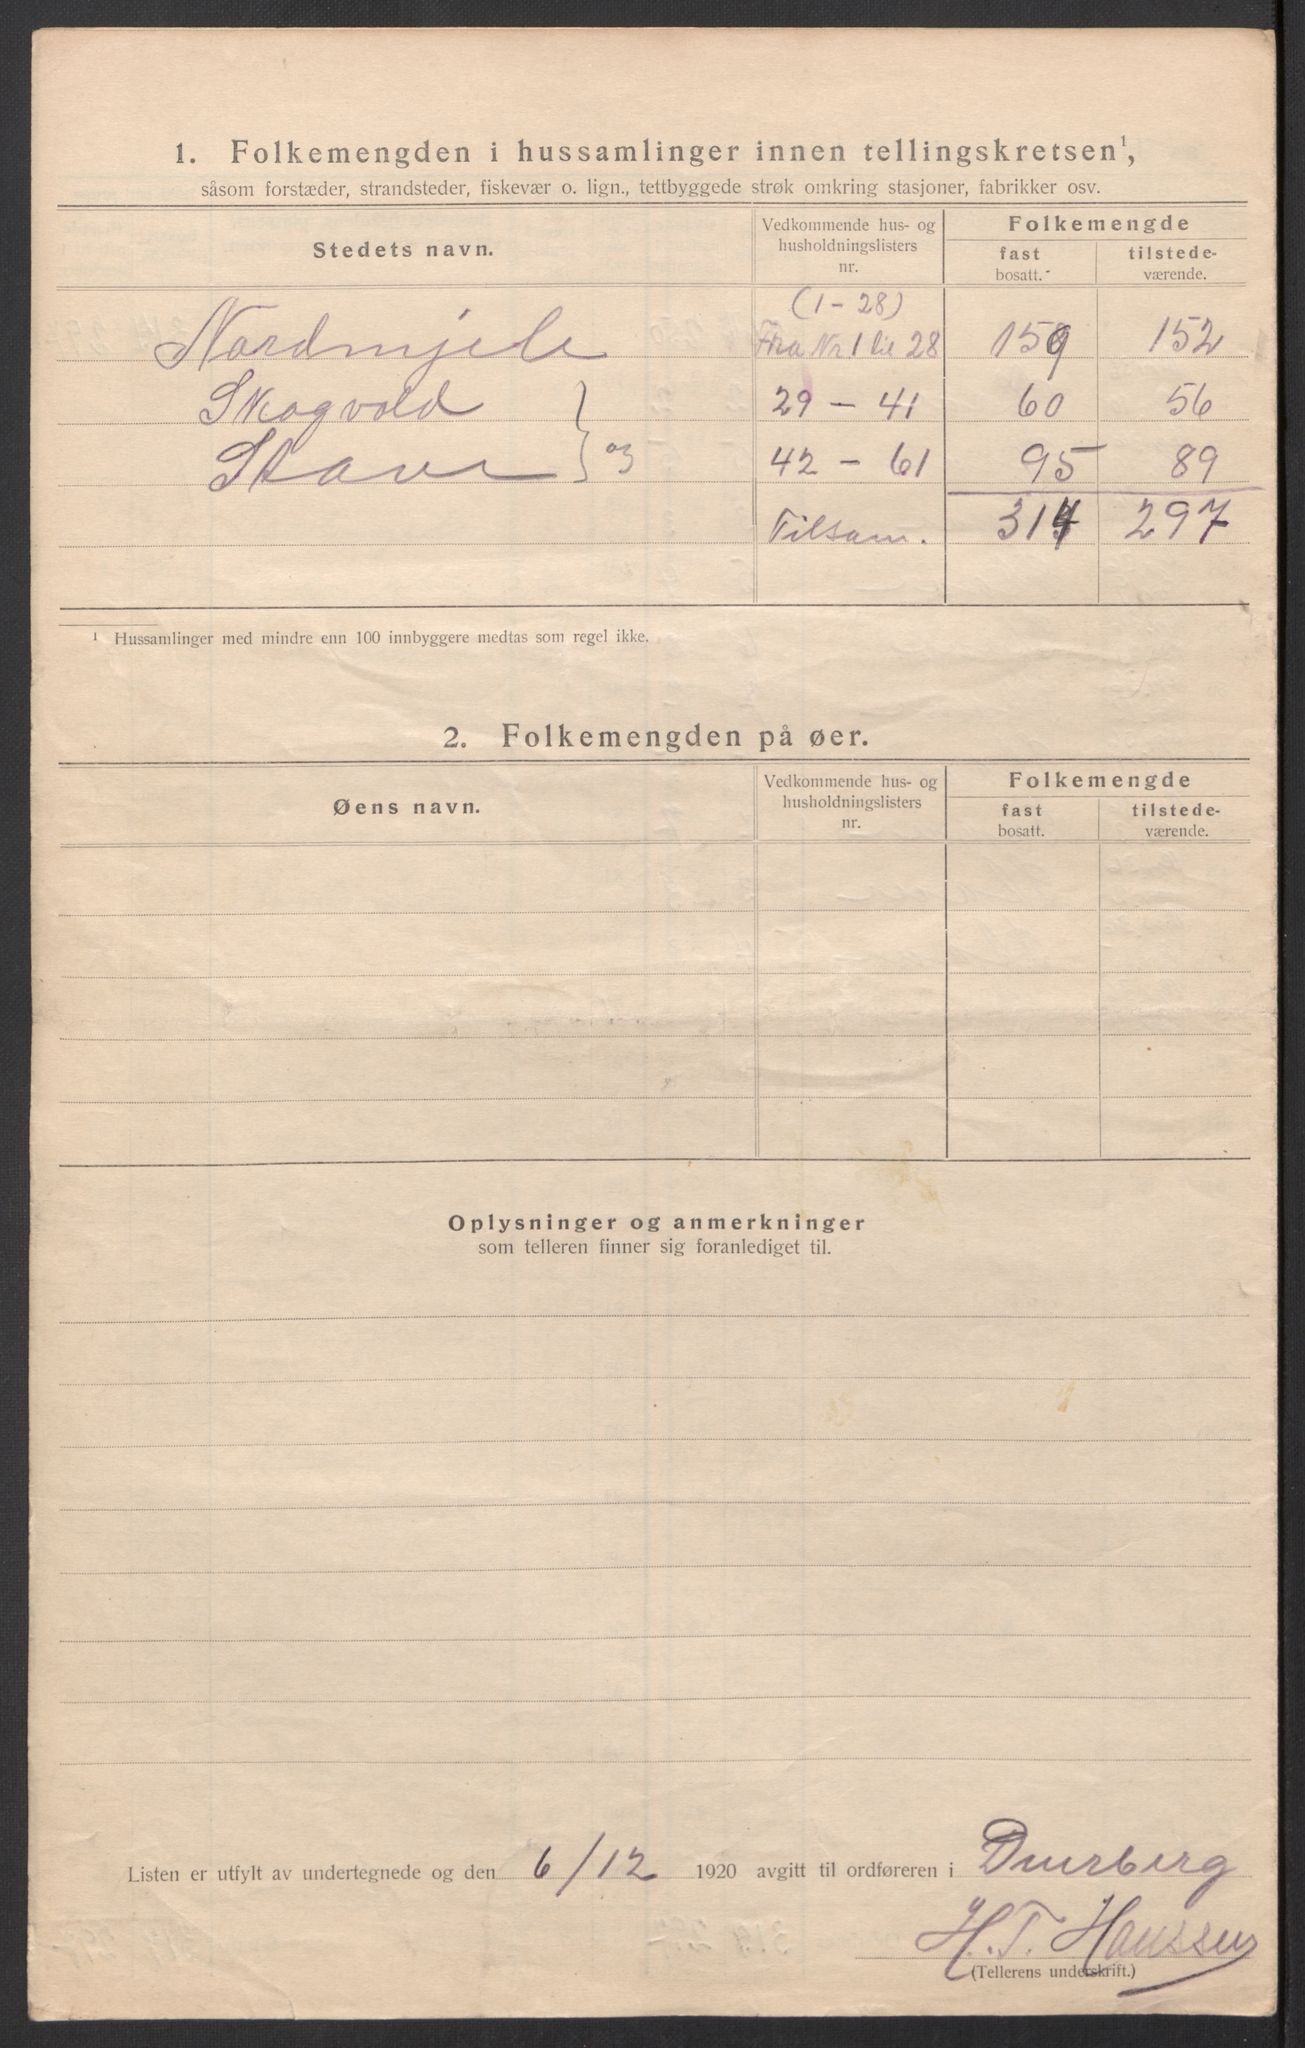 1. Folkemengden i hussamlinger innen tellingskretsen¹,
såsom forstæder, strandsteder, fiskevær o. lign., tettbyggede strøk omkring stasjoner, fabrikker osv.
Stedets navn. Vedkommende hus- og husholdningslisters nr. Folkemengde
fast bosatt. tilstede-værende.
(1-28)
Nordmjele Fra Nr 1 til 28 159 152
Skogvold 29 - 41 60 56
Stave og 42 - 61 95 89
Tilsam. 314 297
¹ Hussamlinger med mindre enn 100 innbyggere medtas som regel ikke.
2. Folkemengden på øer.
Øens navn. Vedkommende hus- og husholdningslisters nr. Folkemengde
fast bosatt. tilstede-værende.
Oplysninger og anmerkninger
som telleren finner sig foranlediget til.
Listen er utfylt av undertegnede og den 6/12 1920 avgitt til ordføreren i Dverberg
H. T. Hanssen
(Tellerens underskrift.)